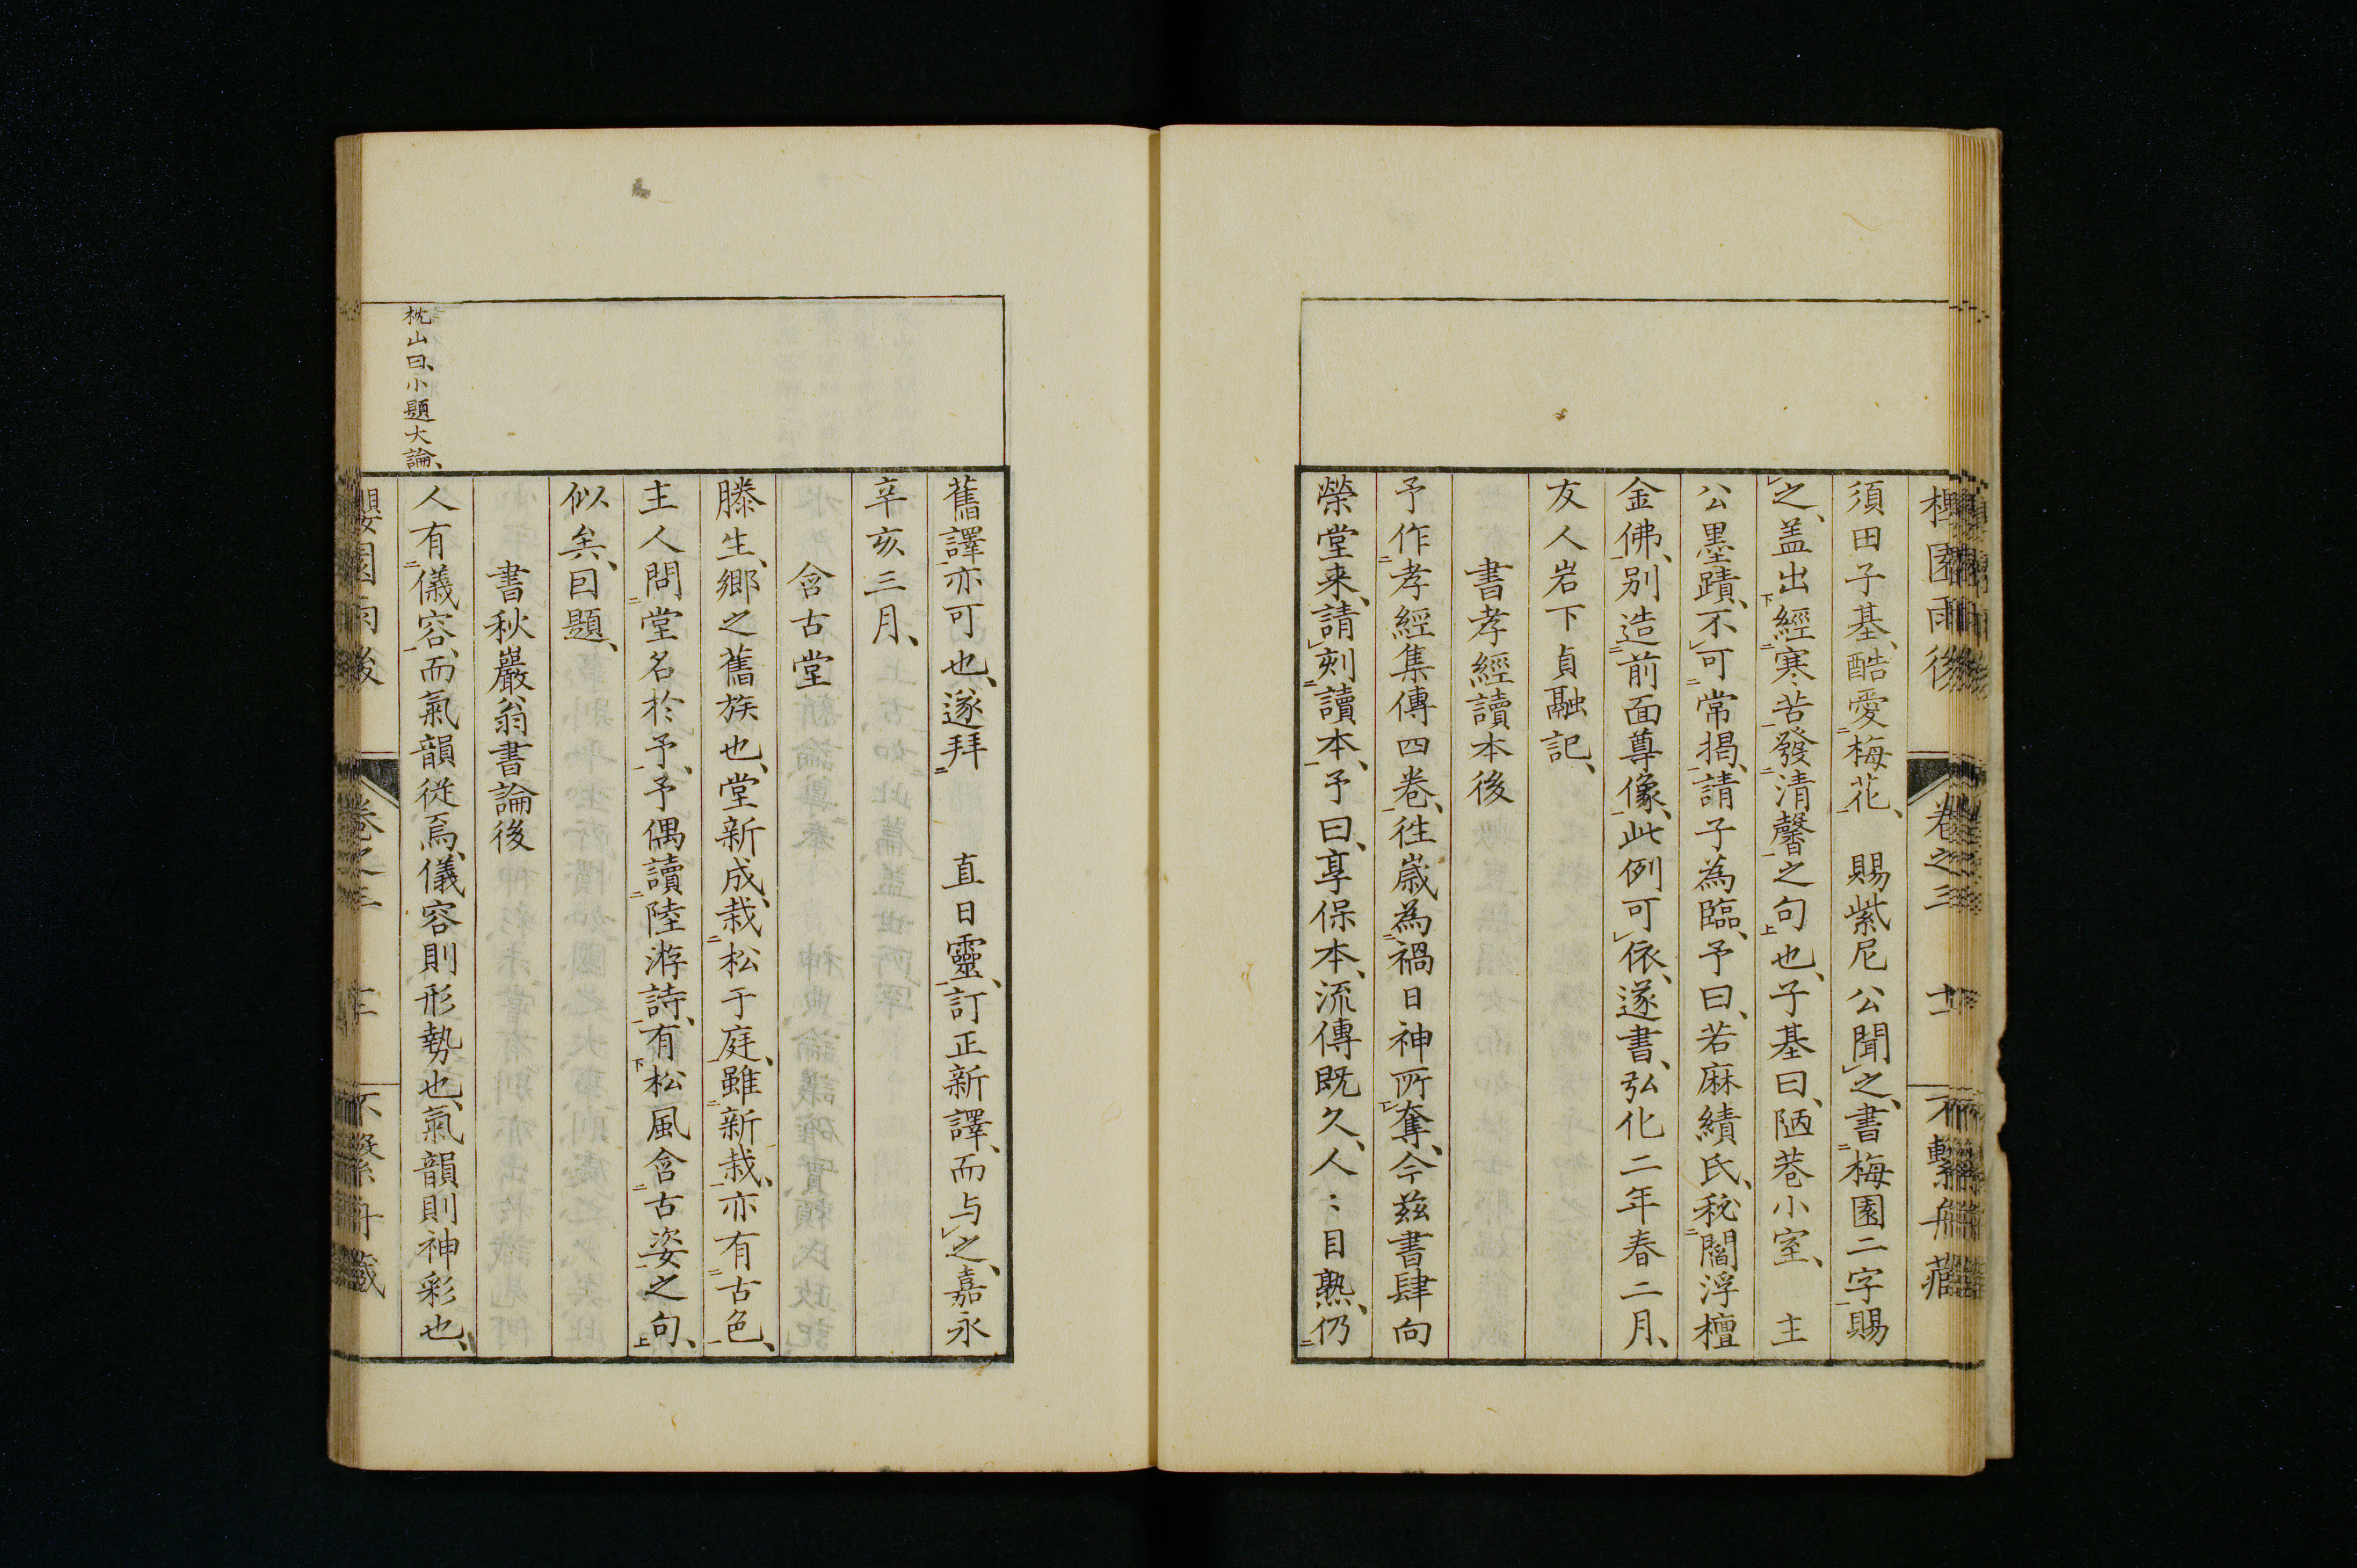 須田子基、酷愛梅花、　賜紫尼公聞之、書梅園二字賜
之、盖出經寒苦發清馨之句也、子基曰、陋巷小室、　主
公墨蹟、不可常揭、請子為臨、予曰、若麻績氏、秘閻浮檀
金佛、別造前面尊像、此例可依、遂書、弘化二年春二月、
友人岩下貞融記、
書孝經讀本後
予作孝經集傳四卷、徃歲為禍日神所奪、今茲書肆向
榮堂来、請刻讀本、予曰、享保本、流傳既久、人〻目熟、仍
舊譯亦可也、遂拜　　直日靈、訂正新譯、而与之、嘉永
辛亥三月、
含古堂
滕生、鄉之舊族也、堂新成、栽松于庭、雖新栽、亦有古色、
主人問堂名於予、予偶讀陸游詩、有松風含古姿之句、
似矣、囙題、
書秋巖翁書論後
枕山曰、小題大論、
人有儀容、而氣韻從焉、儀容則形勢也、氣韻則神彩也、